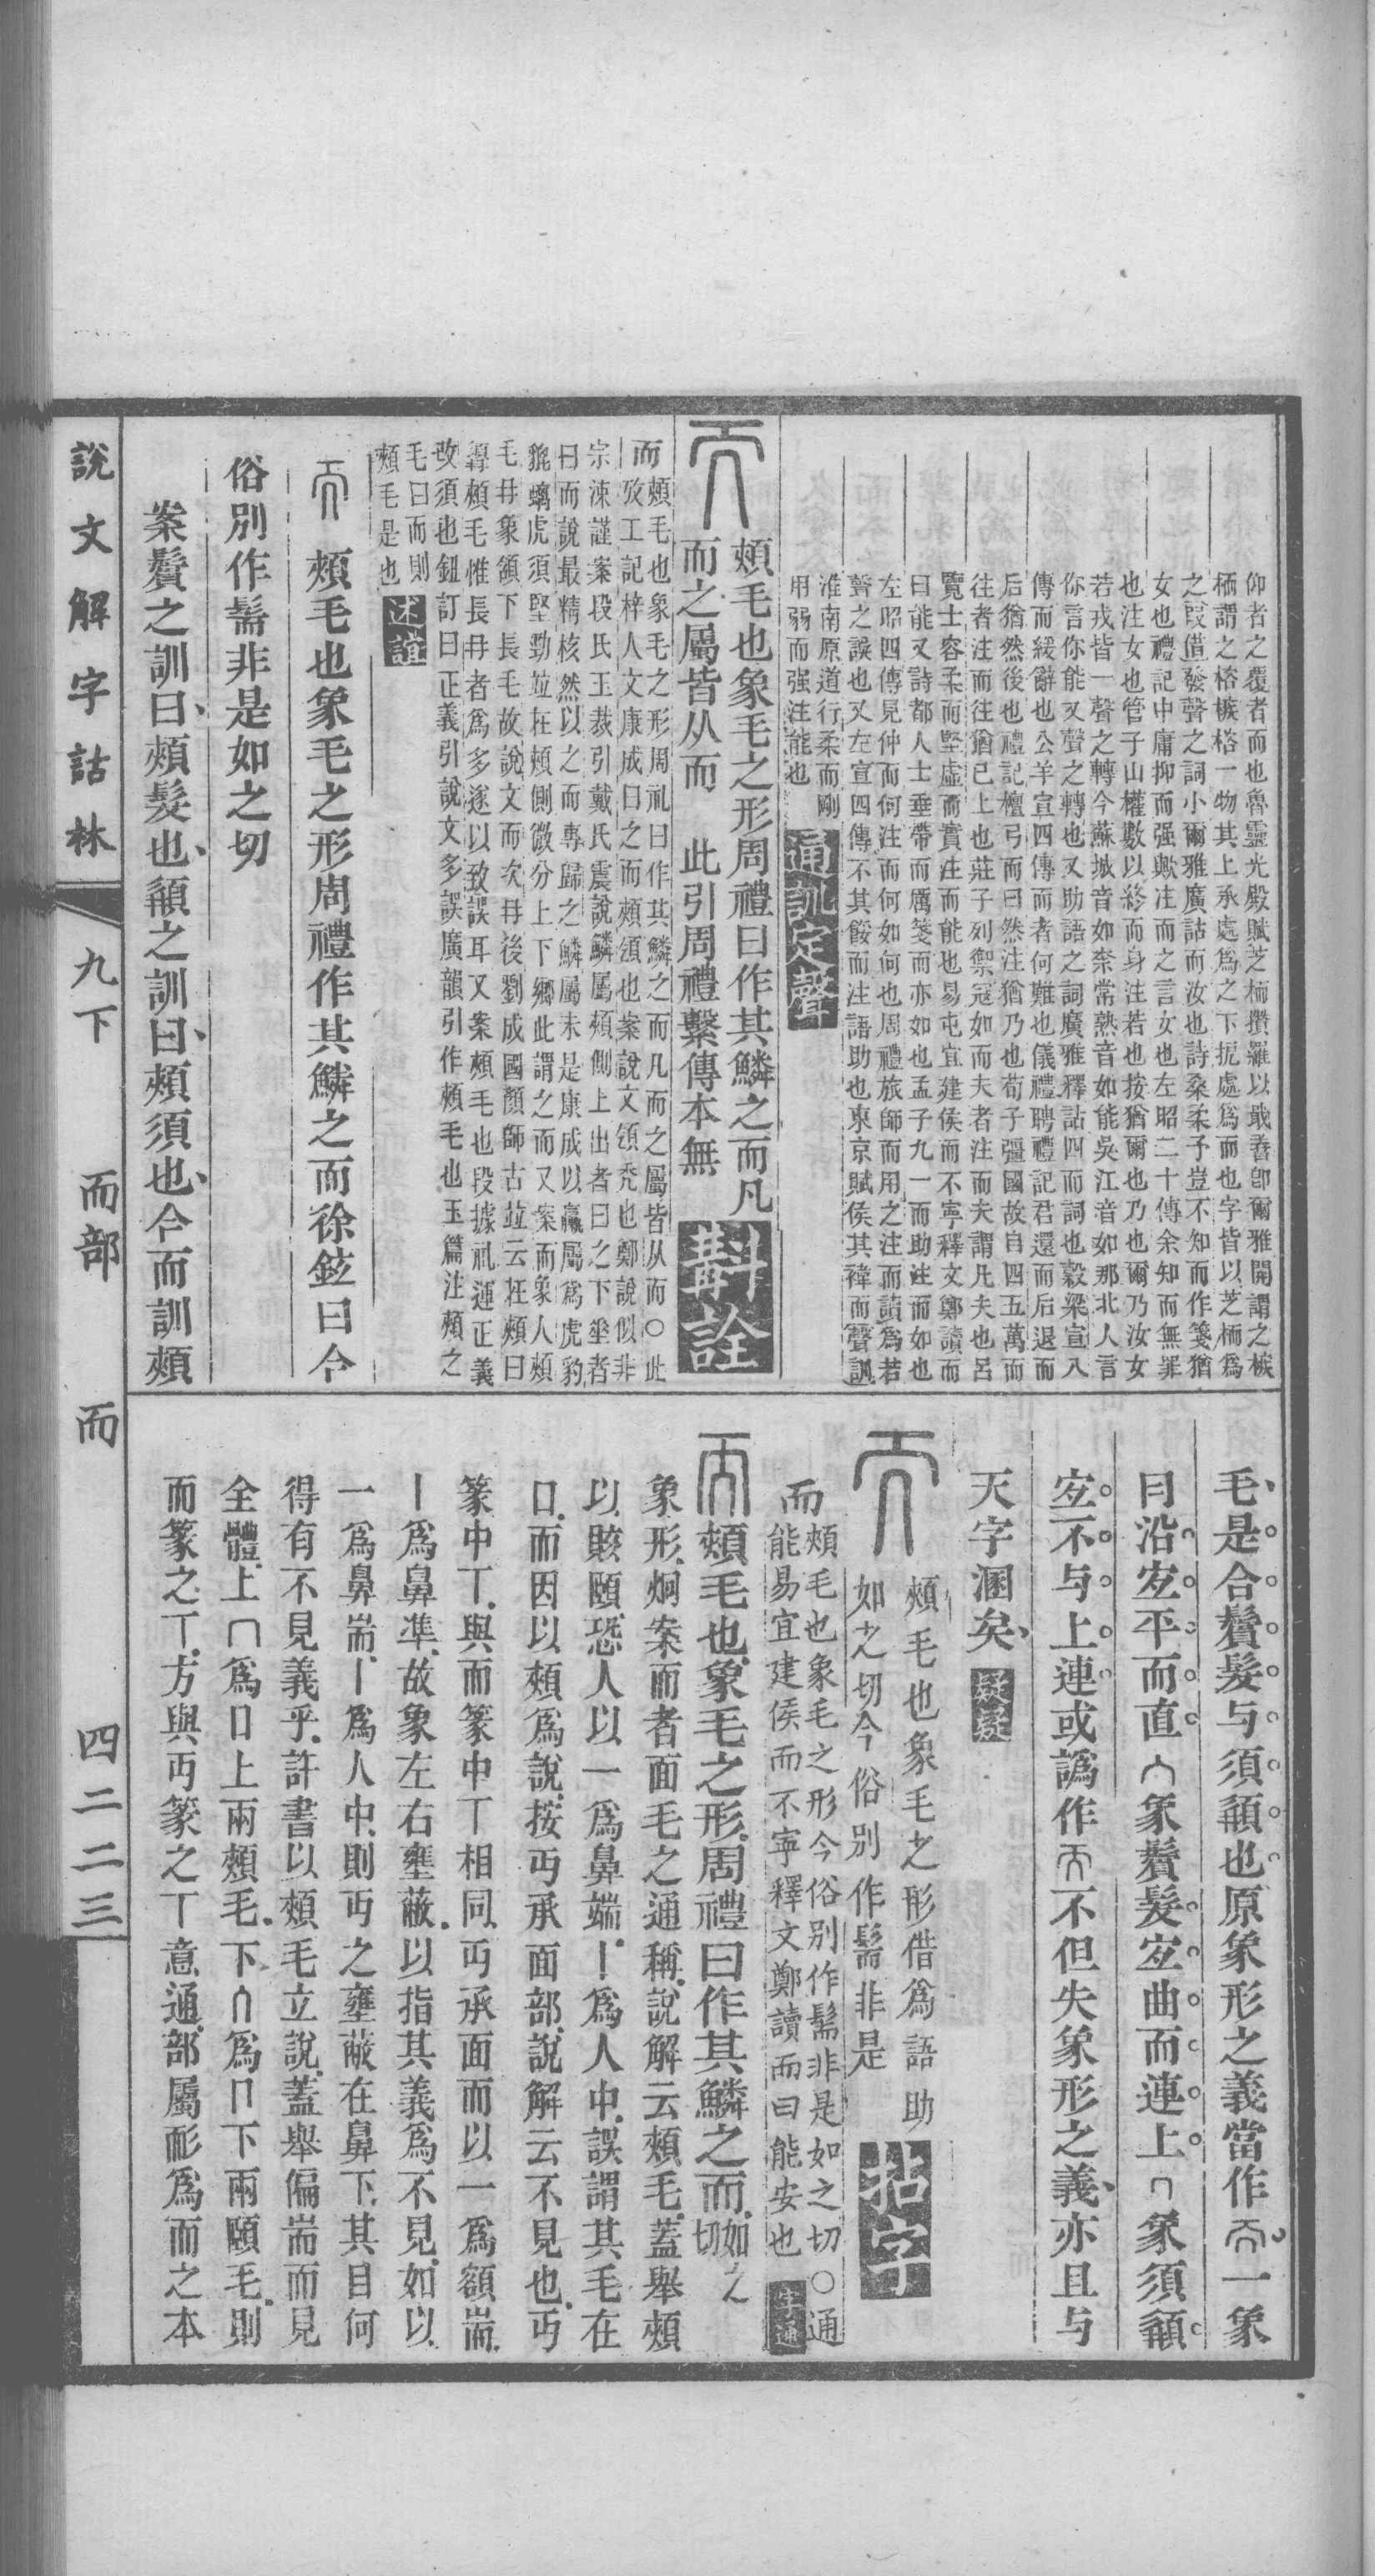 仰者之覆者而也魯靈光殿賦芝栭欑羅以戢孴卽爾雅開謂之槉
栭謂之㭼槉㭼一物其上承處爲之下抳處爲而也字皆以芝栭爲
之叚借發聲之詞小爾雅廣詁而汝也詩桑柔予豈不知而作箋猶
女也禮記中庸抑而强歟注而之言女也左昭二十傳余知而無罪
也注女也管子山權數以終而身注若也按猶爾也乃也爾乃汝女
若戎皆一聲之轉今蘇城音如柰常熟音如能吳江音如那北人言
你言你能又聲之轉也又助語之詞廣雅釋詁四而詞也穀梁宣八
傳而緩辭也公羊宣四傳而者何難也儀禮聘禮記君還而后退而
后猶然後也禮記檀弓而曰然注猶乃也荀子彊國故自四五萬而
往者注而往猶已上也莊子列禦冠如而夫者注而夫謂凡夫也呂
覽士容柔而堅虛而實注而能也易屯宜建侯而不寧釋文鄭讀而
曰能又詩都人士垂帶而厲箋而亦如也孟子九一而助注而如也
左昭四傳見仲而何注而何如何也周禮旅師而用之注而讀爲若
聲之誤也又左宣四傳不其餒而注語助也東京賦侯其褘而聲訓
淮南原道行柔而剛
用弱而强注能也
通訓定聲
頰毛也象毛之形周禮曰作其鱗之而凡
而之屬皆从而 此引周禮繫傳本無
斠詮
而
頰毛也象毛之形周礼曰作其鱗之而凡而之屬皆从而○此
攷工記梓人文康成曰之而頰頷也案說文頷禿也鄭說似非
宗涑謹案段氏玉裁引戴氏震說鱗屬頰側上出者曰之下垂者
曰而說最精核然以之而專歸之鱗屬未是康成以臝屬爲虎豹
貔螭虎須堅勁竝在頰側微分上下鄉此謂之而又案而象人頰
毛冄象頷下長毛故說文而次冄後劉成國顏師古竝云在頰曰
髯頰毛惟長冄者爲多遂以致誤耳又案頰毛也段據礼運正義
改須也鈕訂曰正義引說文多誤廣韻引作頰毛也玉篇注頰之
毛曰而則
頰毛是也
述誼
頰毛也象毛之形周禮作其鱗之而徐鉉曰今
俗別作髵非是如之切
案鬢之訓曰頰髮也䫇之訓曰頰須也今而訓頰
毛是合鬢髮与須䫇也原象形之義當作一象
㒳沿㝎平而直象鬢髮㝎曲而連上象須䫇
㝎不与上連或譌作不但失象形之義亦且与
天字溷矣
疑疑
頰毛也象毛之形借爲語助
如之切今俗別作髵非是
拈字
而
頰毛也象毛之形今俗別作髵非是如之切○通
能易宜建侯而不寧釋文鄭讀而曰能安也
字通
頰毛也象毛之形周禮曰作其鱗之而如之切
象形炯案而者面毛之通稱說解云頰毛蓋舉頰
以賅頤恐人以一爲鼻端丨爲人中誤謂其毛在
口而因以頰爲說按丏承面部說解云不見也丏
篆中丅與而篆中丅相同丏承面而以一爲額耑
丨爲鼻準故象左右壅蔽以指其義爲不見如以
一爲鼻耑丨爲人中則丏之壅蔽在鼻下其目何
得有不見義乎許書以頰毛立說蓋舉偏耑而見
全體上冂爲口上兩頰毛下爲口下兩頤毛則
而篆之丅方與丏篆之丅意通部屬耏爲而之本
說文解字詁林 九下 而部 而 四二二三